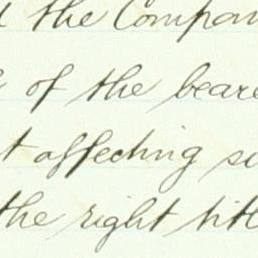 the Compan
of the beare
t affecting su
the right titl